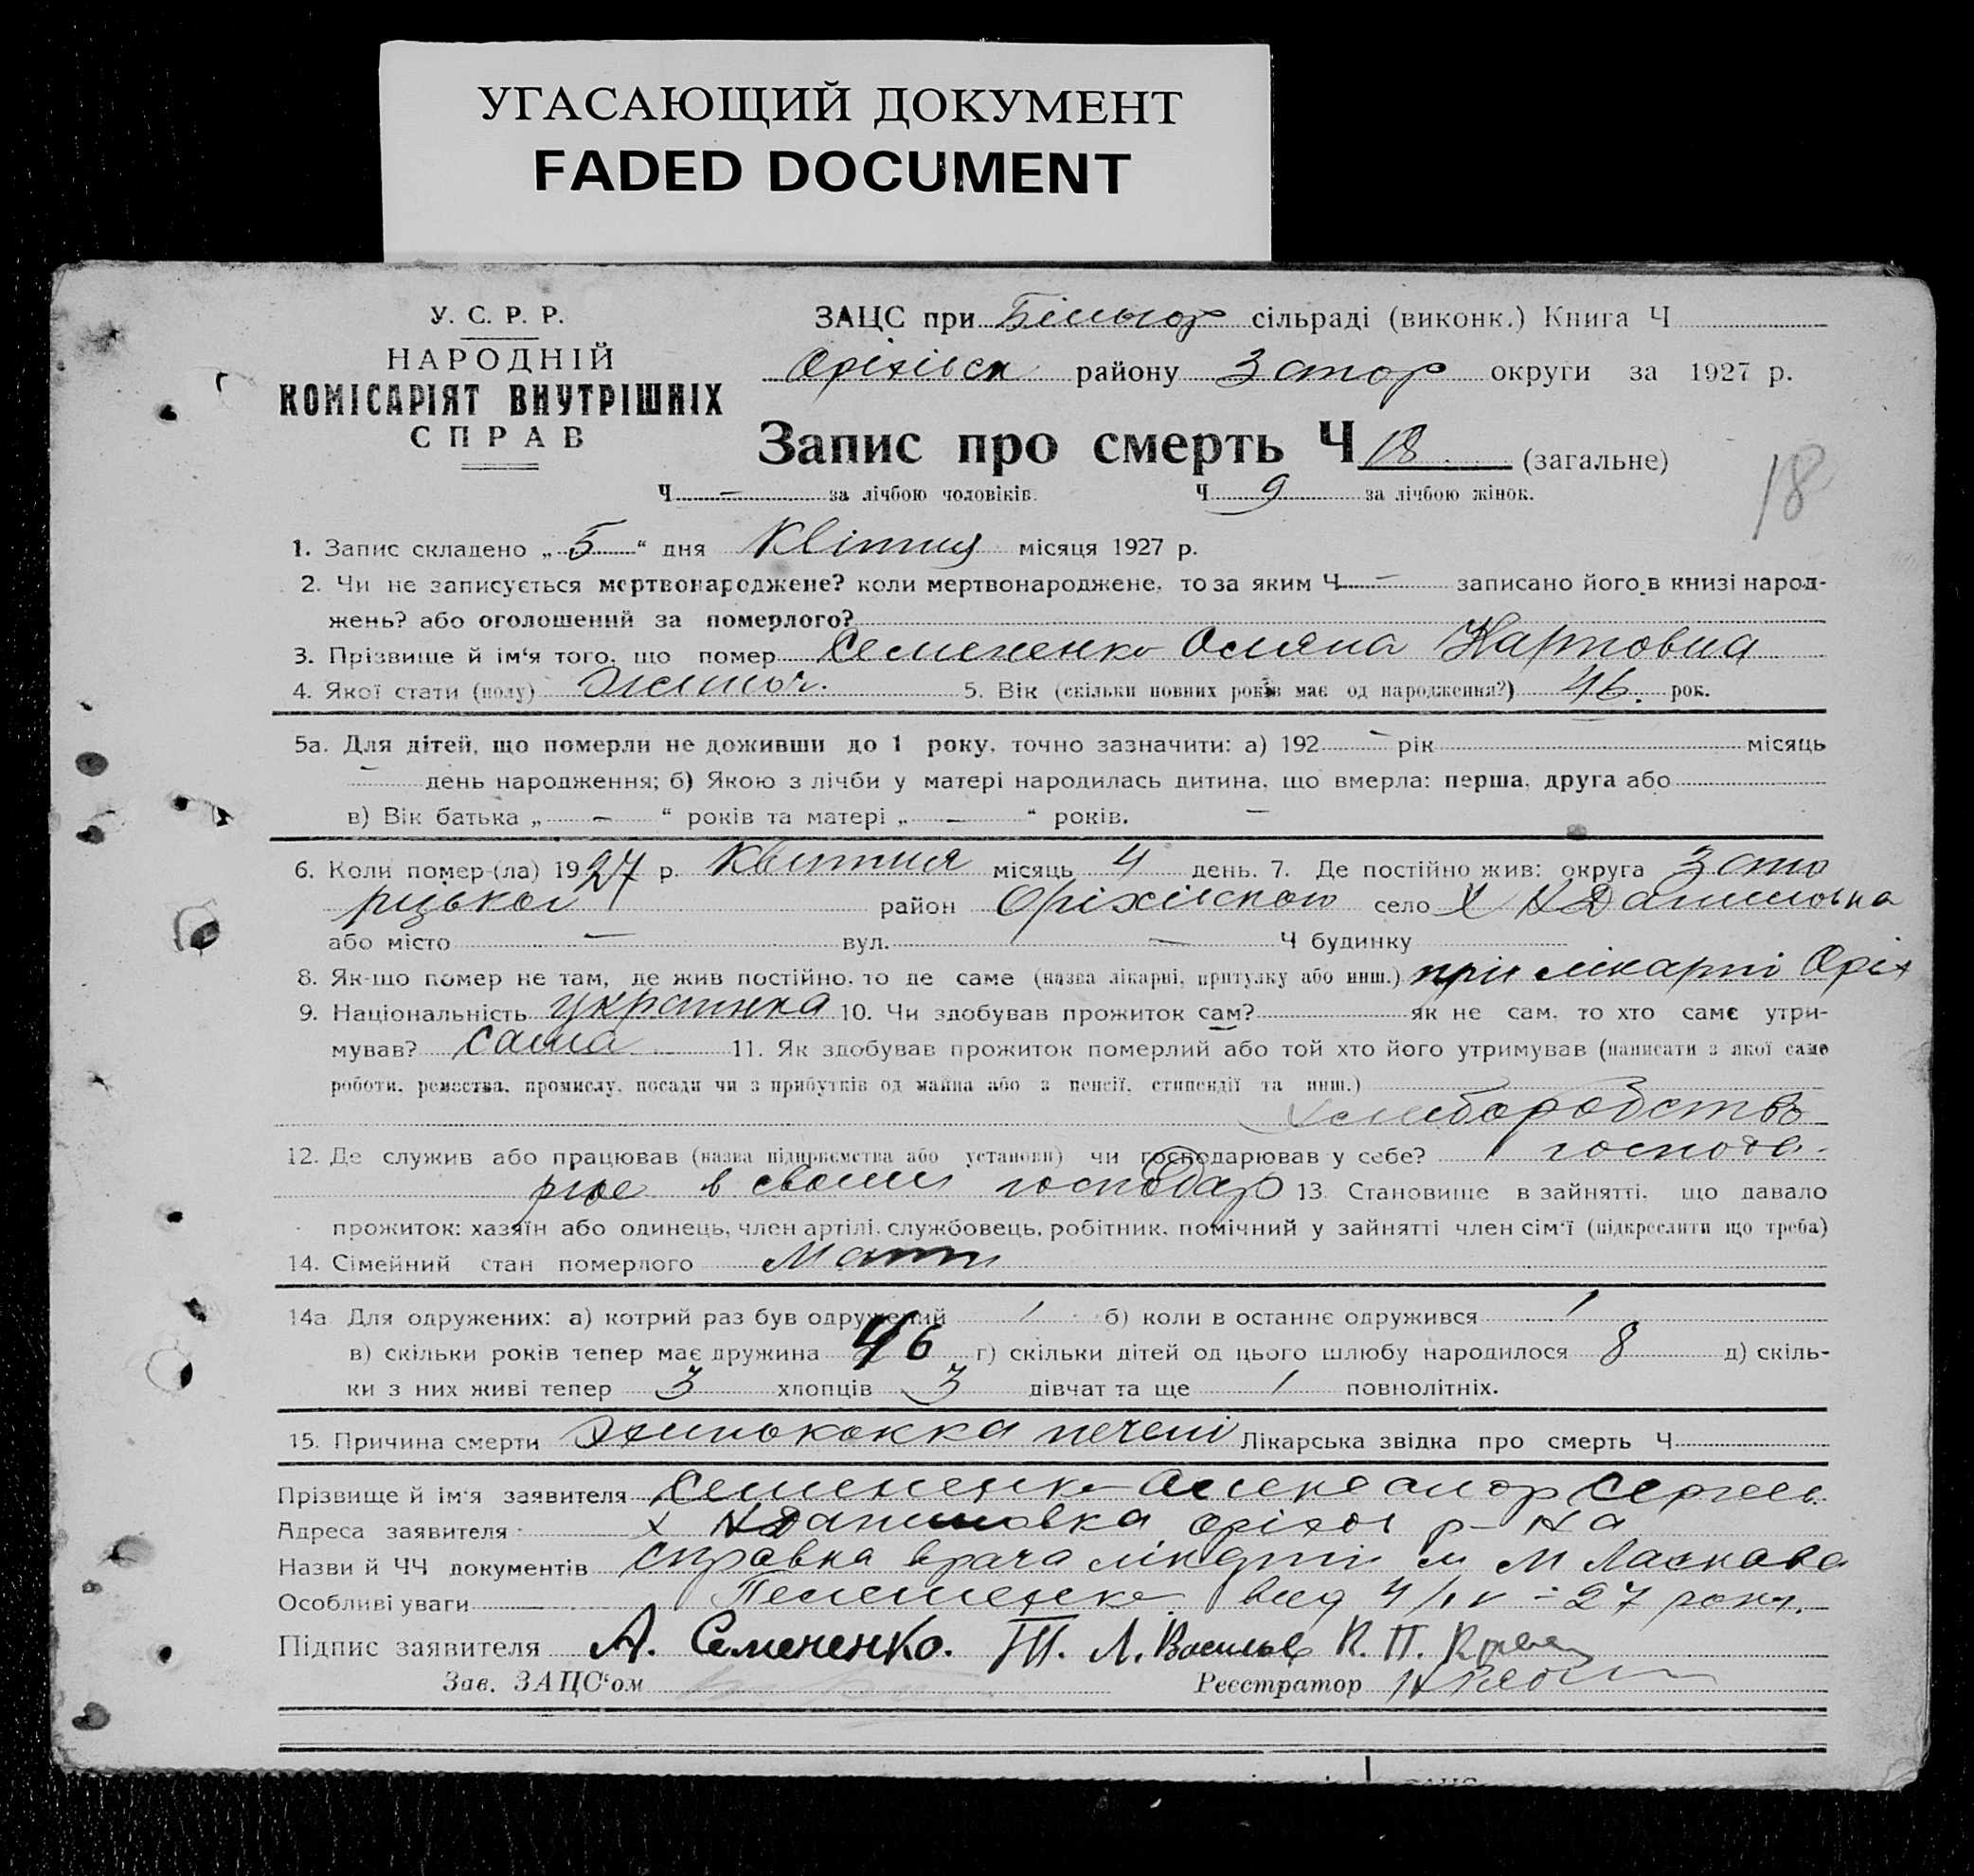 УГАСАЮЩИЙ ДОКУМЕНТ
FADED DOCUMENT
У. С. Р. Р.
НАРОДНІЙ
КОМІСАРІЯТ ВНУТРІШНІХ
СПРАВ
ЗАЦС при Більгор сільраді (виконк.) Книга Ч
Оріхівск району Запор округи за 1927 р.
Запис про смерть Ч 18 (загальне)
18
Ч - за лічбою чоловіків. Ч 9 за лічбою жінок.
1. Запис складено „ 5 “ дня Квітня місяця 1927 р.
2. Чи не записується мертвонароджене? коли мертвонароджене, то за яким Ч - записано його в книзі народ-
жень? або оголошений за померлого?
3. Прізвище й ім‘я того, що помер Семененко Оляна Карповна
4. Якої стати (полу) Жіноч. 5. Вік (скільки повних років має од народження?) 46. рок.
5а. Для дітей, що померли не доживши до 1 року, точно зазначити: а) 192 - рік місяць
- день народження; б) Якою з лічби у матері народилась дитина, що вмерла: перша, друга або
в) Вік батька „ - “ років та матері „ - “ років. -
6. Коли помер-(ла) 1927 р. Квітня місяць 4 день. 7. Де постійно жив: округа Запо
ріцької район Оріхівского село Х НДаниловка
або місто - вул. - Ч будинку
8. Як-що помер не там, де жив постійно, то де саме (назва лікарні, притулку або инш.) при лікарні Оріх
9. Національність українка 10. Чи здобував прожиток сам? як не сам, то хто саме утри-
мував? сама 11. Як здобував прожиток померлий або той хто його утримував (написати з якої саме
роботи, ремества, промислу, посади чи з прибутків од майна або з пенсії, стипендії та инш.)
хлиборобство
12. Де служив або працював (назва підприємства або установи) чи господарював у себе? господа-
рює в своим господар 13. Становище в зайнятті, що давало
прожиток: хазяїн або одинець, член артілі, службовець, робітник, помічний у зайнятті член сім‘ї (підкреслити що треба)
14. Сімейний стан померлого Мати
14а Для одружених: а) котрий раз був одружений 1 б) коли в останнє одружився 1
в) скільки років тепер має дружина 46 г) скільки дітей од цього шлюбу народилося 8 д) скіль-
ки з них живі тепер 3 хлопців 3 дівчат та ще 1 повнолітніх.
15. Причина смерти Эхинококка печені Лікарська звідка про смерть Ч
Прізвище й ім‘я заявителя Семененко Александр Сергеев
Адреса заявителя х НДаниловка оріхов р-на
Назви й ЧЧ документів справка врача
Особливі уваги від 4/IV-27 року.
Підпис заявителя А. Семененко. Л. Васильев К. П.
Зав. ЗАЦС‘ом Реєстратор